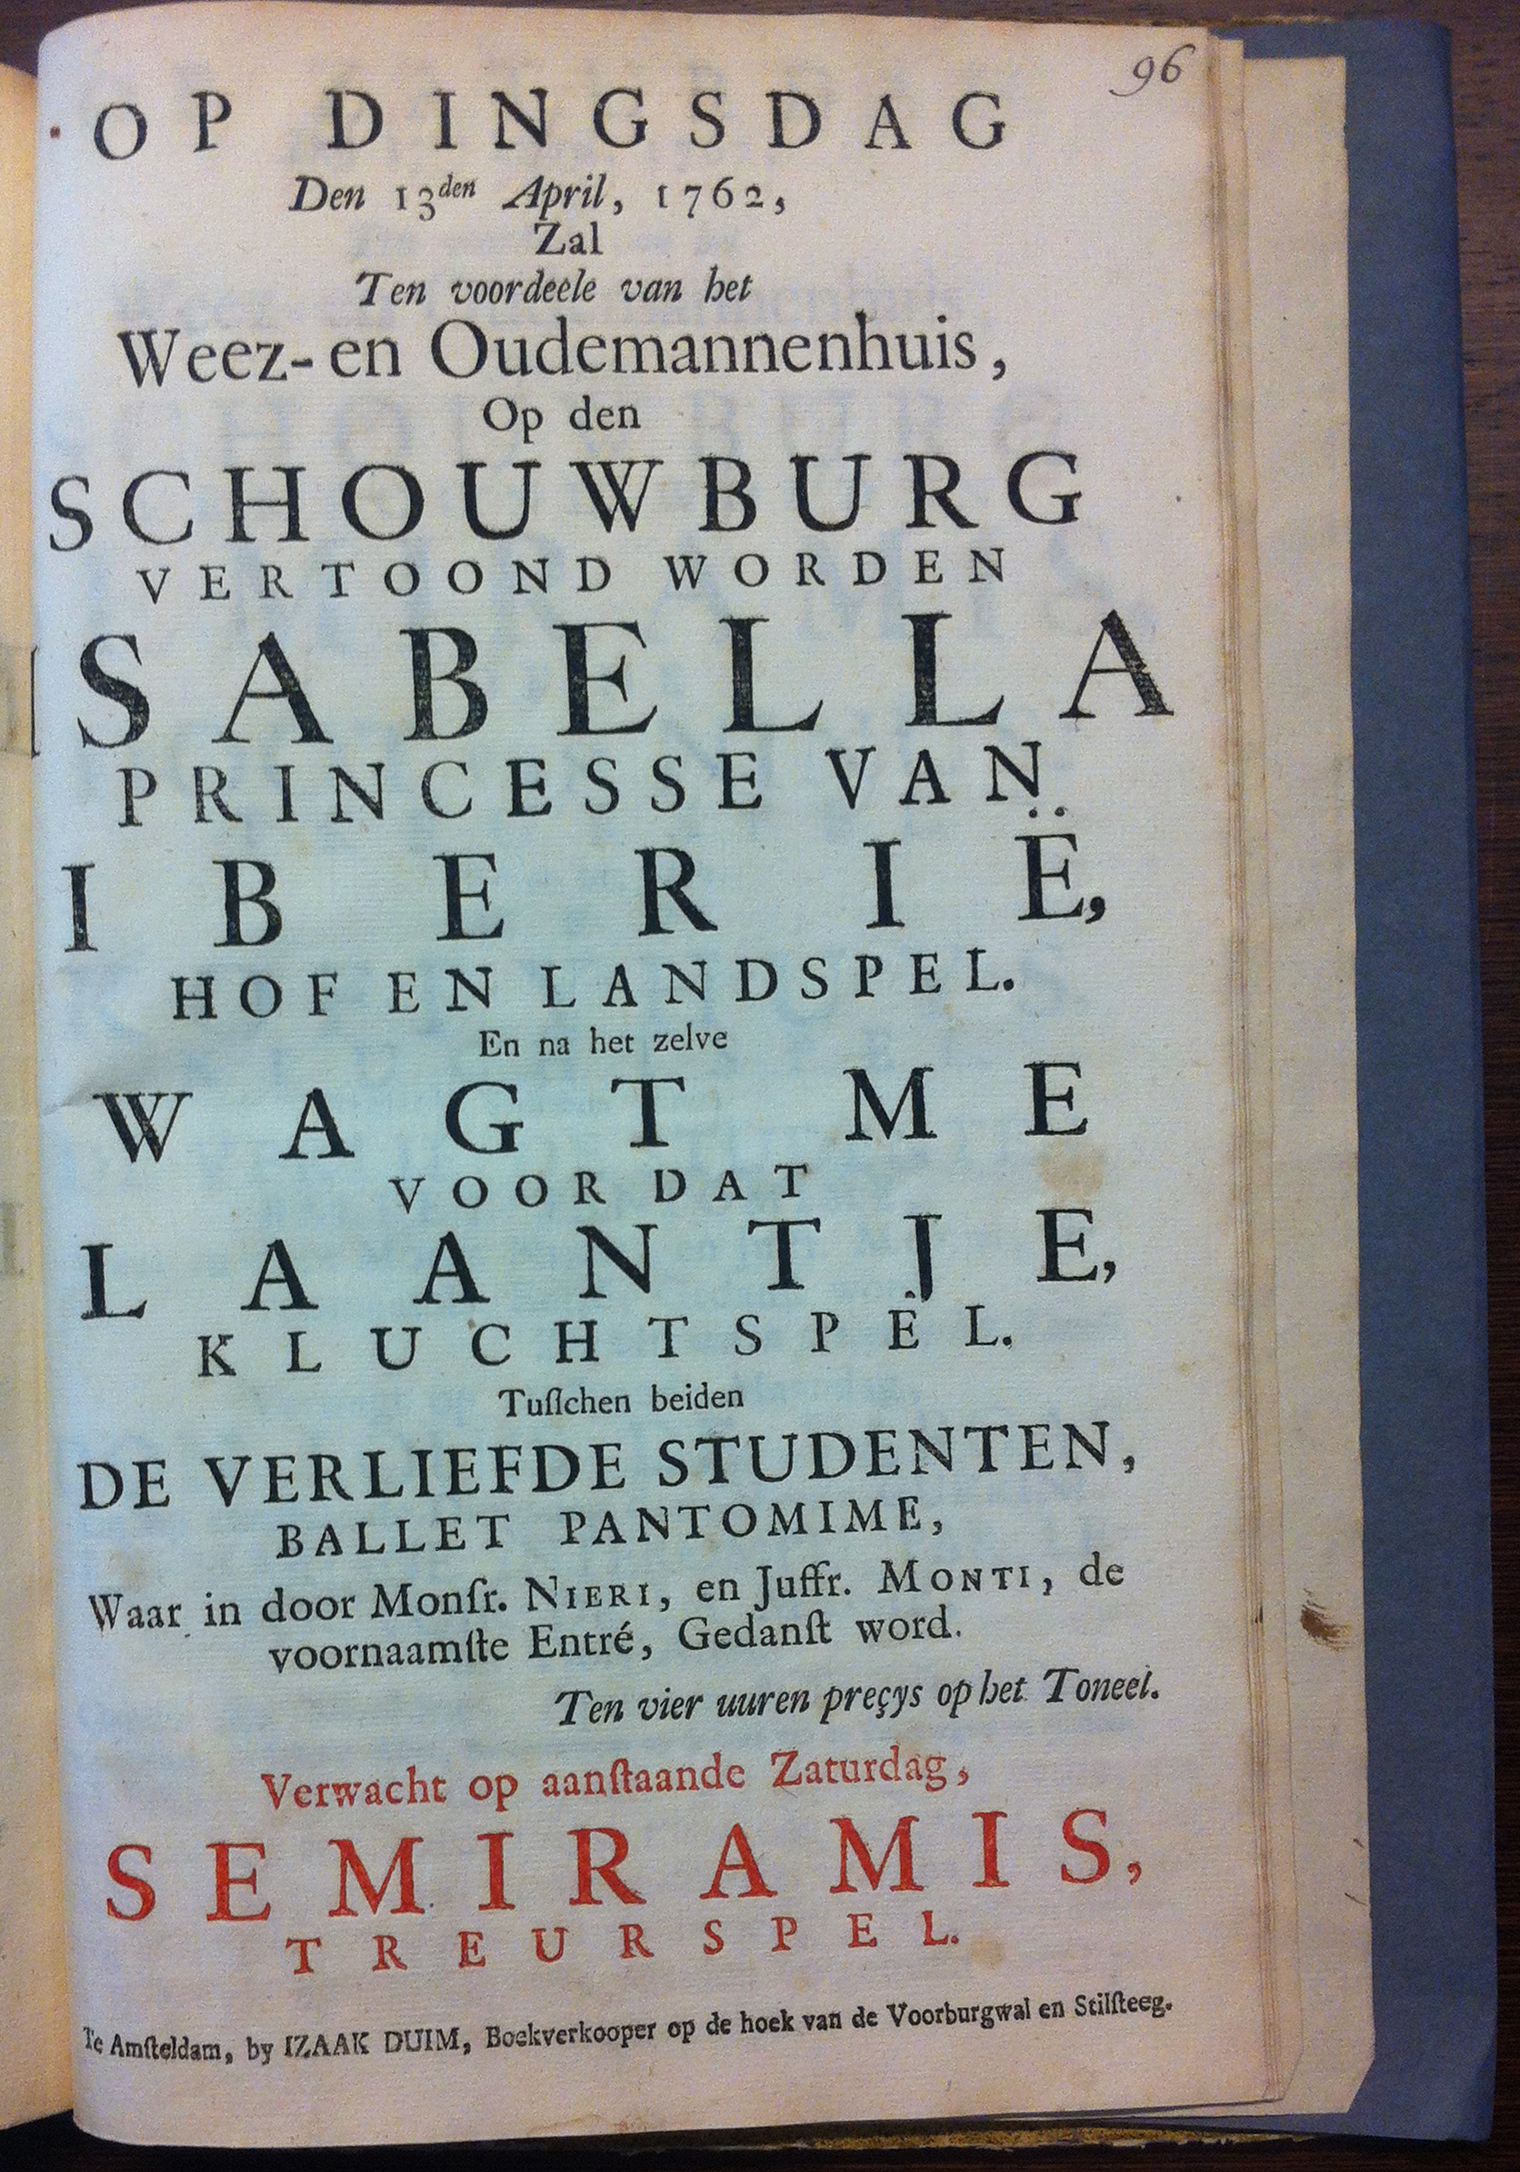 96
OP DINGSDAG
Den 13den April, 1762,
Zal
Ten voordeele van het
Weez- en Oudemannenhuis,
Op den
SCHOUWBURG
VERTOOND WORDEN
ISABELLA
PRINCESSE VAN
IBERIË,
HOF EN LANDSPEL.
En na het zelve
WAGT ME
VOOR DAT
LAANTJE,
KLUCHTSPEL.
Tuſſchen beiden
DE VERLIEFDE STUDENTEN,
BALLET PANTOMIME,
Waar in door Monſr. NIERI, en Juffr. MONTI, de
voornaamſte Entré, Gedanſt word.
Ten vier uuren preçys op het Toneel.
Verwacht op aanſtaande Zaturdag,
SEMIRAMIS,
TREURSPEL.
Te Amſteldam, by IZAAK DUIM, Boekverkooper op de hoek van de Voorburgwal en Stilſteeg.